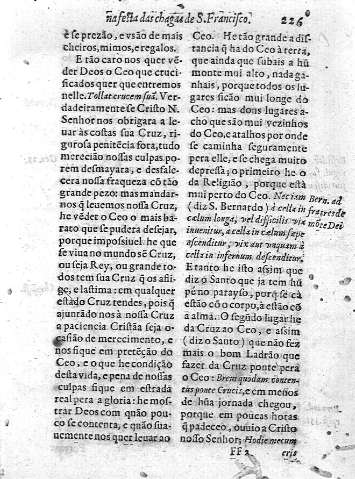 na festa das chagas de S. Francisco.
226
è se prezão, e vsão de mais
cheiros, mimos, e regalos.
E tão caro nos quer vẽ-
der Deos o Ceo que cruci-
ficados quer que entremos
nelle. Tollat crucem suã. Ver-
dadeiramente se Cristo N.
Senhor nos obrigara a le-
uar às costas sua Cruz, ri-
gurosa penitẽcia fora, tudo
mereciáo nossas culpas po-
rem desmayara, e desfale-
cera nossa fraqueza cõ tão
grande pezo: mas mandar-
nos q̃ leuemos nossa Cruz,
he vẽder o Ceo o mais ba-
rato que se pudera desejar,
porque impossiuel he que
se viua no mundo sẽ Cruz,
ou seja Rey, ou grande to-
dos tem sua Cruz q̃ os afli-
ge, e lastima: em qualquer
estàdo Cruz tendes, pois q̃
ajuntãdo nòs à nossa Cruz
a paciencia Cristãa seja o-
casião de merecimento, e
nos fique em pretẽção do
Ceo, e o que he condição
desta vida, e pena de nossas
culpas fique em estrada
real pera a gloria: he mos-
trar Deos com quão pou-
co se contenta, e quão sua-
uemente nos quer leuar ao
Ceo. He tão grande a dis-
tancia q̃ ha do Ceo à terra,
que ainda que subais a hũ
monte mui alto, nada ga-
nhais, porque todos os lu-
gares ficão mui longe do
Ceo: mas dous lugares a-
cho que são mui vezinhos
do Ceo, e atalhos por onde
se caminha seguramente
pera elle, e se chega muito
depressa; o primeiro he o
da Religião, porque està
mui perto do Ceo. Nec iam
(diz S. Bernardo) à cella in
cælum longa, vel difficilis via
inuenitur, a cella in cælum sæpe
ascenditur, vix aut vnquam à
cella in infernum descenditur.
E tanto he isto assim que
diz o Santo que ja tem hũ
pè no parayso, porq̃ se cà
estão cõ o corpo, là estão cõ
a alma. O segũdo lugar he
da Cruz ao Ceo, e assim
(diz o Santo) que não fez
mais o bom Ladrão que
fazer da Cruz ponte pera
o Ceo: Breui quodam conten-
tus ponte Crucis, e em menos
de hũa jornada chegou,
porque em poucas horas
q̃ padeceo, ouuio a Cristo
nosso Senhor; Hodie mecum
Bern. ad
fratres de
mõte Dei
FF 2
eris